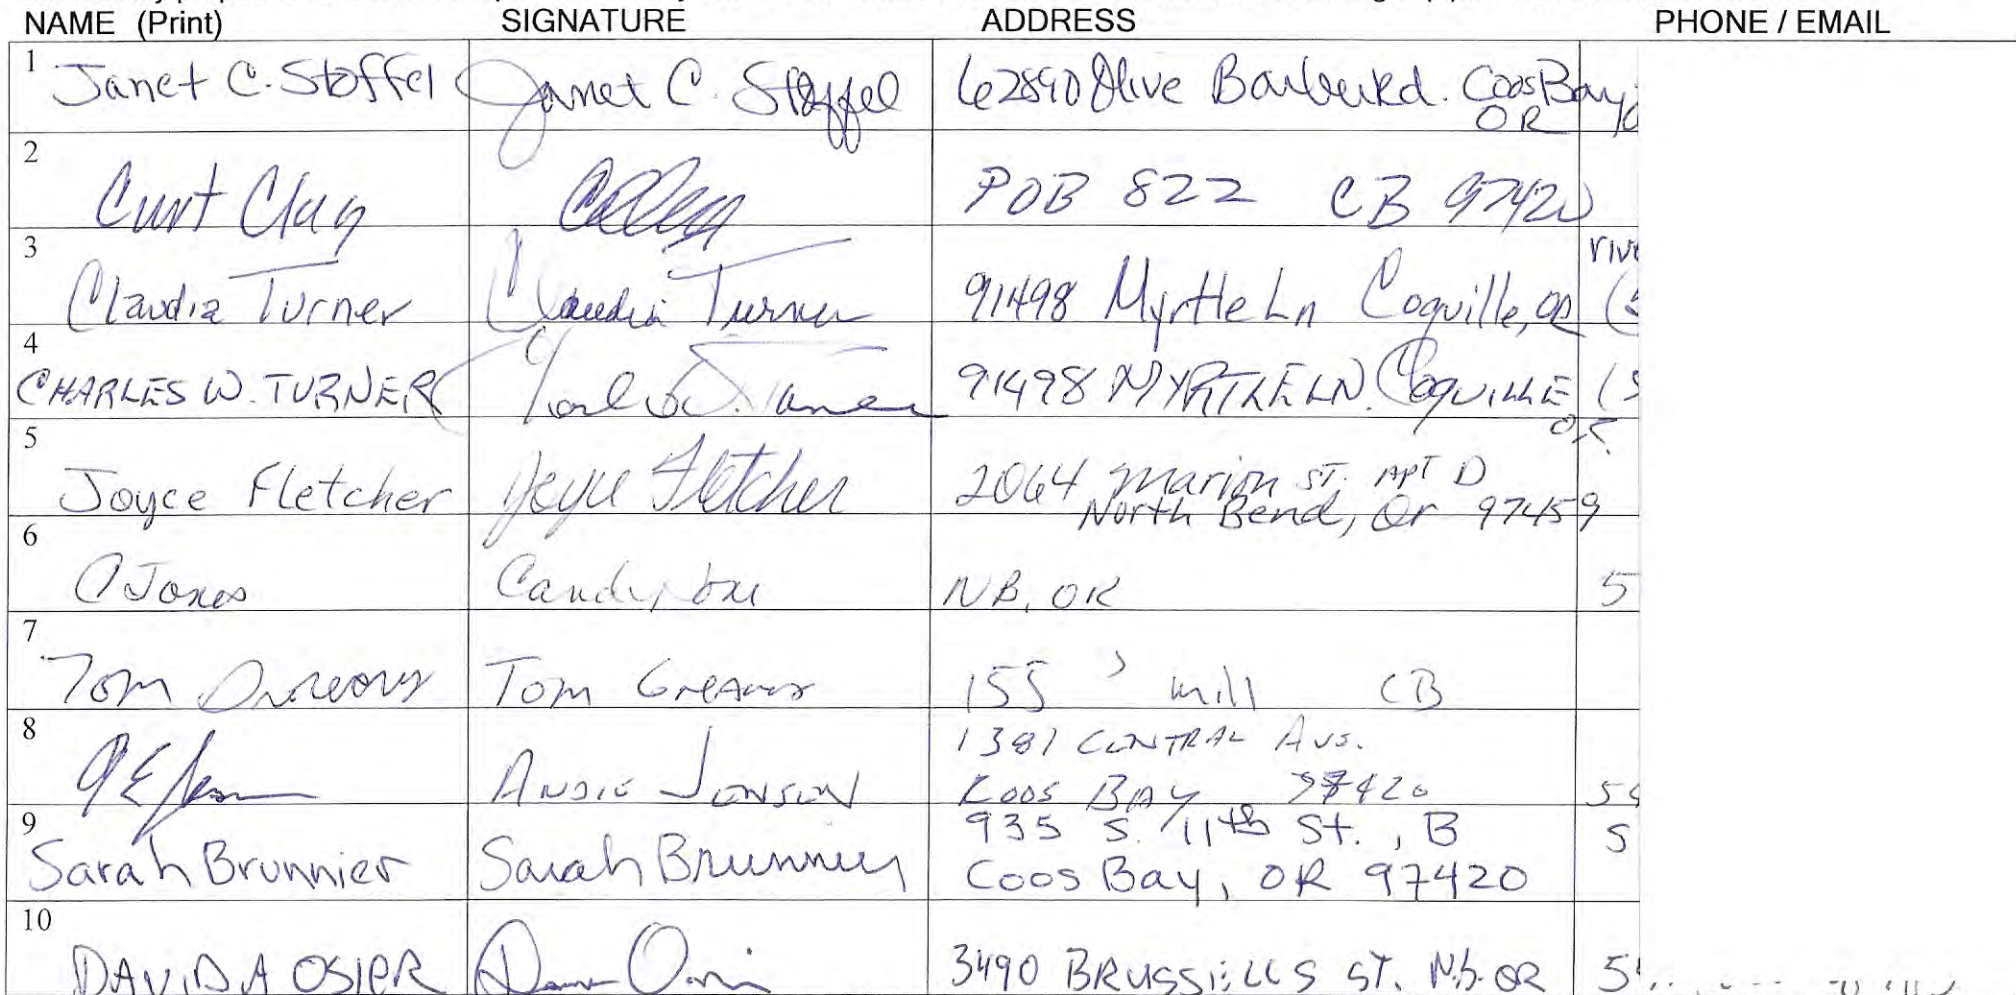 NAME (Print) SIGNATURE ADDRESS PHONE / EMAIL
1 Janet C. Stoffel Janet C. Stoffel 62890 Olive Barber Rd. Coos Bay
OR
2 Curt Clay POB 822 CB 97420
3 Claudia Turner Claudia Turner 91498 Myrtle Ln Coquille, OR
4 CHARLES W. TURNER 91498 MYRTLE LN. COQUILLE
OR
5 Joyce Fletcher Joyce Fletcher 2064 Marion ST. APT D
North Bend, Or 97459
6 C Jones NB, OR 5
7 Tom Tom 155 mill CB
8 1381 CENTRAL AVE.
COOS BAY 97420
9 935 S. 11th St., B 5
Sarah Brunnier Sarah Brunnier Coos Bay, OR 97420
10 DAVID A OSIER 3490 BRUSSELLS ST. N.b. OR